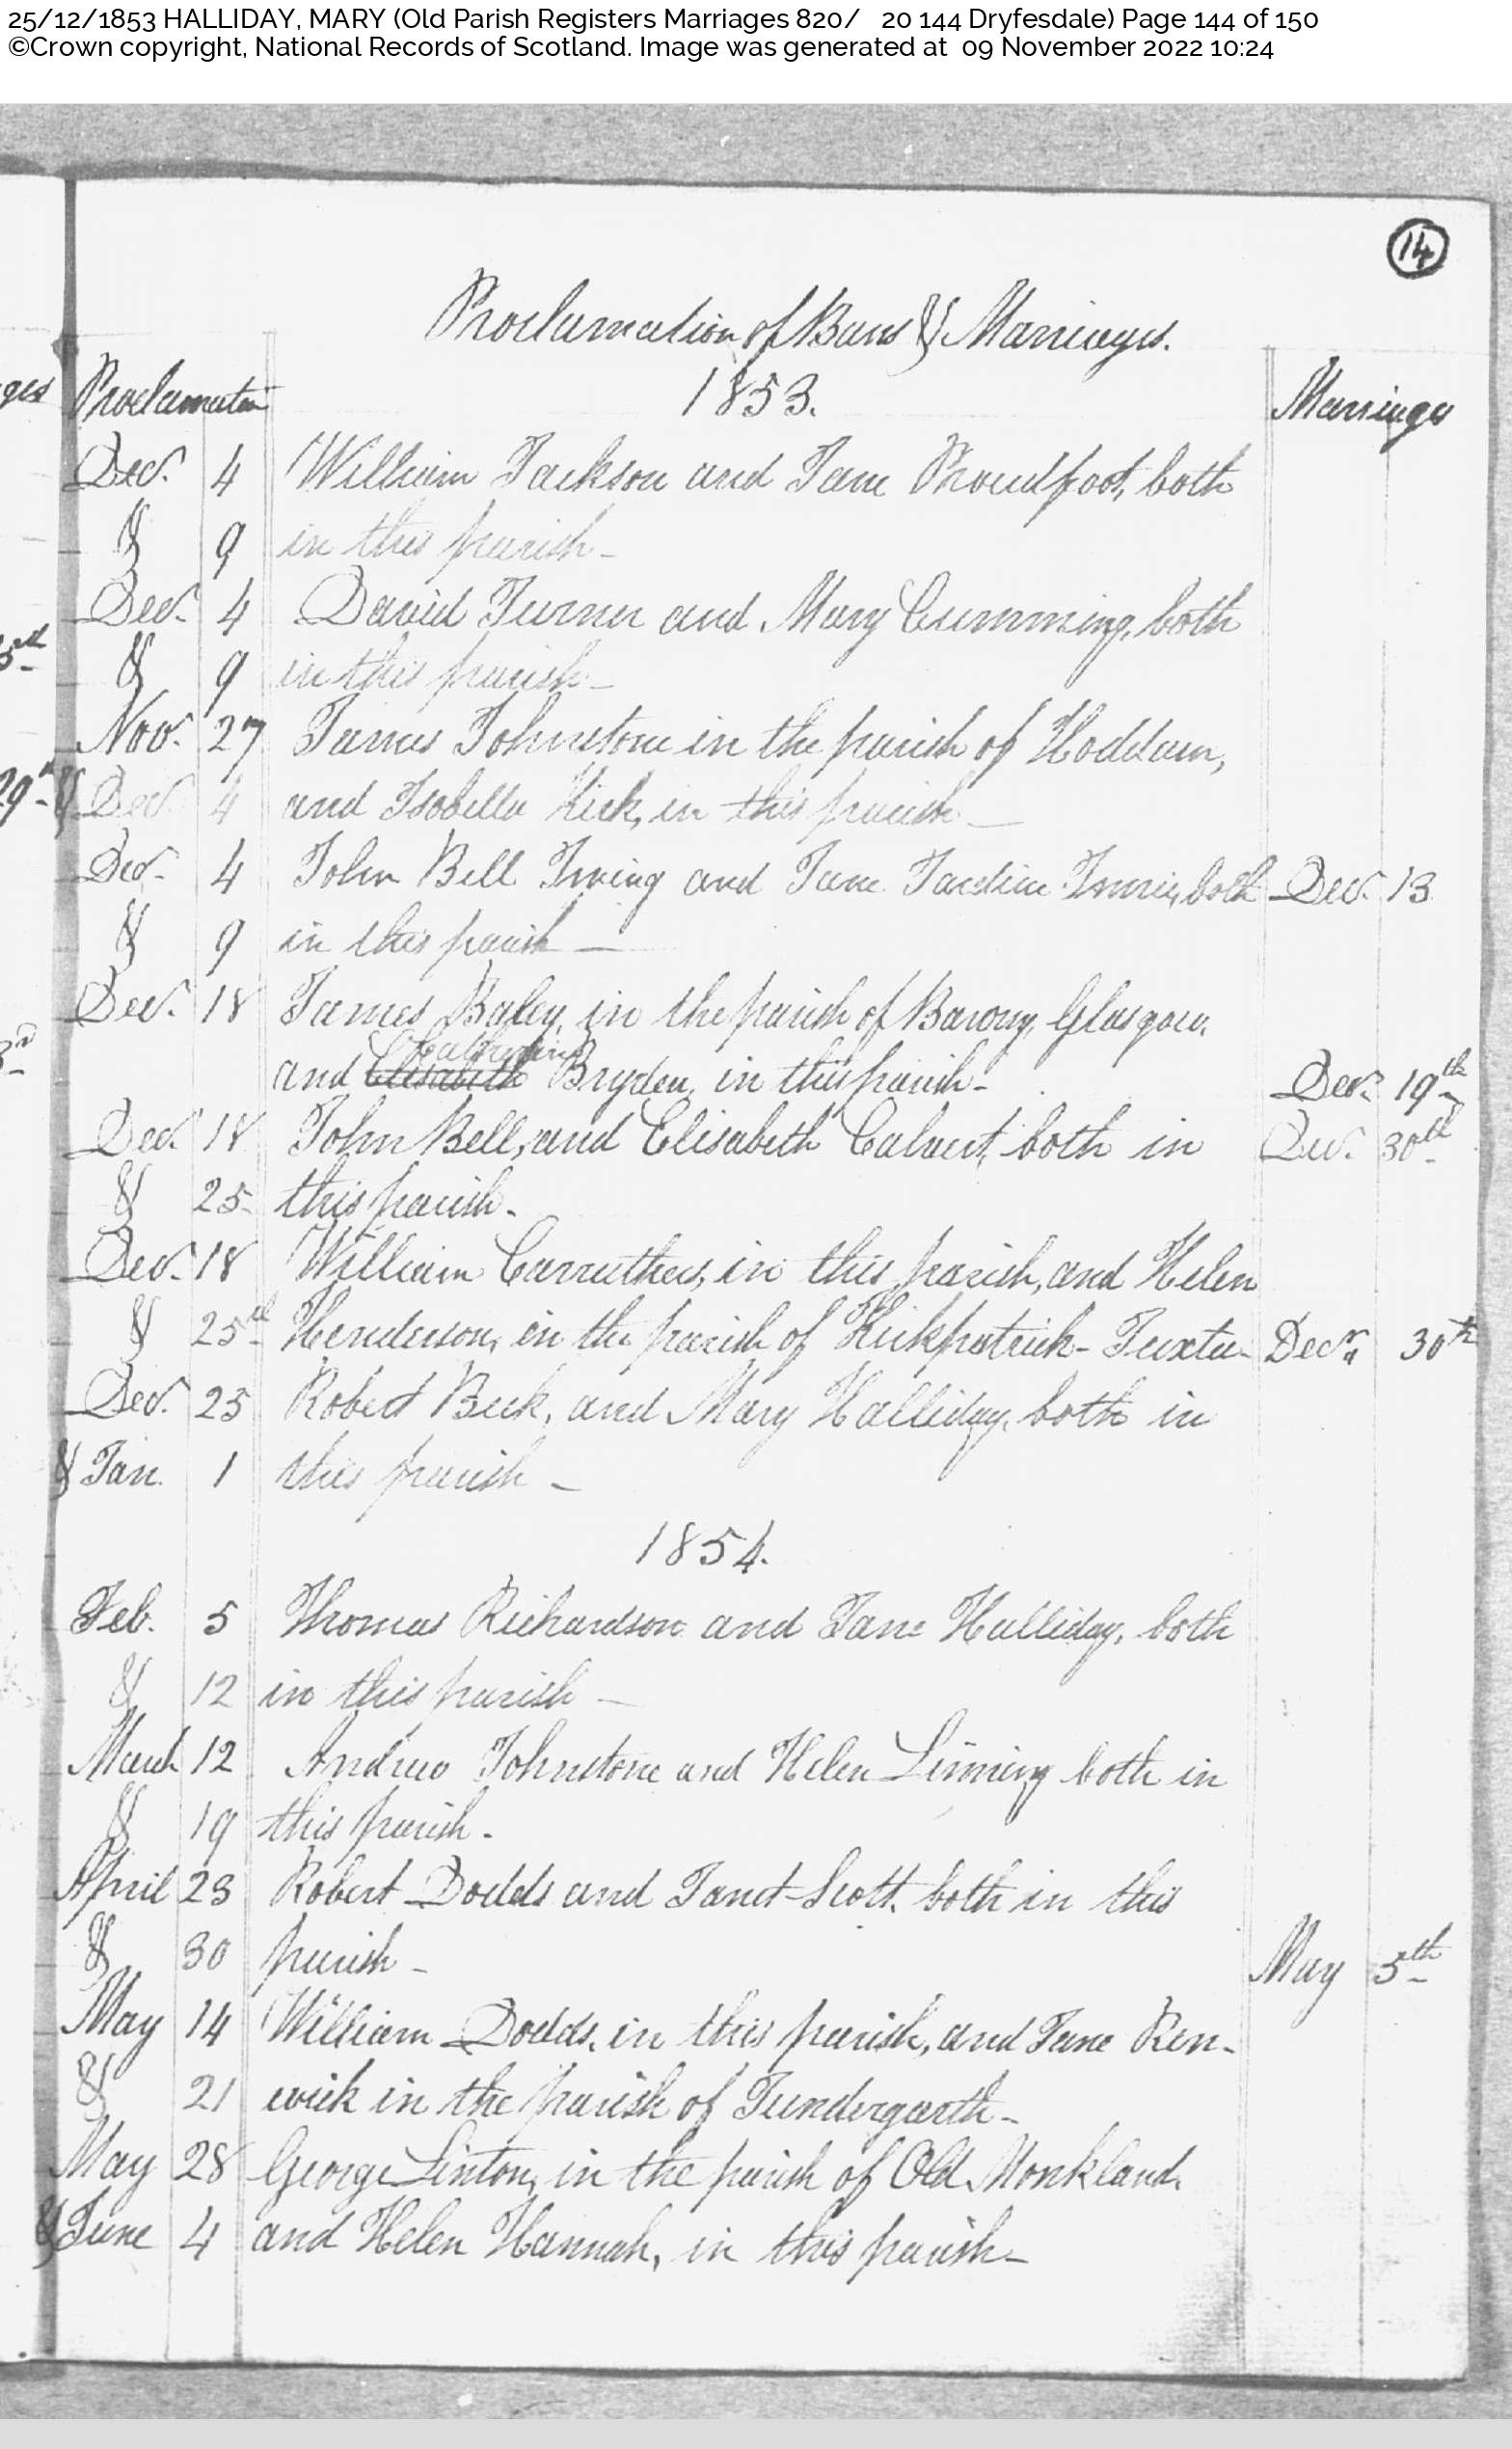 25/12/1853 HALLIDAY, MARY (Old Parish Registers Marriages 820/ 20 144 Dryfesdale) Page 144 of 150
©Crown copyright, National Records of Scotland. Image was generated at 09 November 2022 10:24
14
Proclamation of Bans & Marriages.
ges Proclamation 1853. Marriages
Dec. 4 William Jackson and Jane Proudfoot, both
& 9 in this parish -
Dec. 4 David Turner and Mary Cumming, both
& 9 in this parish -
Nov. 27 James Johnstone in the parish of Hoddam,
& Dec. 4 and Isobella Kirk, in this parish -
Dec. 4 John Bell Irving and Jane Jardine both Dec. 13
& 9 in this parish -
Dec. 18 James Baley, in the parish of Barony, Glasgow,
Catherine
and Elisabeth Bryden, in this parish - Dec. 19th
Dec. 18 John Bell, and Elisabeth Calvert, both in Dec. 30th
& 25 this parish -
Dec. 18 William Carruthers, in this parish, and Helen
& 25th Henderson, in the parish of Kirkpatrick-Juxta - Decr. 30th
Dec. 25 Robert Beck, and Mary Halliday, both in
& Jan. 1 this parish -
1854.
Feb. 5 Thomas Richardson and Jane Halliday, both
& 12 in this parish -
March 12 Andrew Johnstone and Helen Linning both in
& 19 this parish -
April 23 Robert Dodds and Janet Scott, both in this
& 30 parish - May 5th
May 14 William Dodds, in this parish, and Jane Ren-
& 21 wick in the parish of Tundergarth -
May 28 George Linton, in the parish of Old Monkland,
& June 4 and Helen Hannah, in this parish -